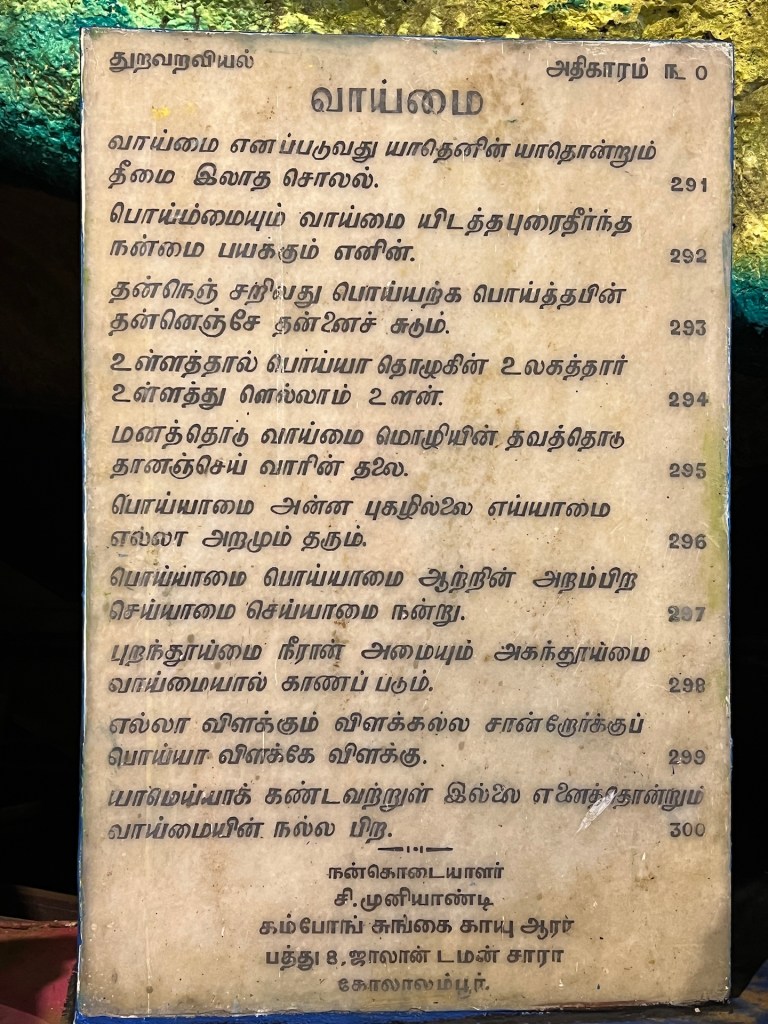 துறவறவியல்
அதிகாரம் ௩ 0
வாய்மை
வாய்மை எனப்படுவது யாதெனின் யாதொன்றும்
தீமை இலாத சொலல். 291
பொய்ம்மையும் வாய்மை யிடத்தபுரைதீர்ந்த
நன்மை பயக்கும் எனின். 292
தன்நெஞ் சறிவது பொய்யற்க பொய்த்தபின்
தன்னெஞ்சே தன்னைச் சுடும். 293
உள்ளத்தால் பொய்யா தொழுகின் உலகத்தார்
உள்ளத்து ளெல்லாம் உளன். 294
மனத்தொடு வாய்மை மொழியின் தவத்தொடு
தானஞ்செய் வாரின் தலை. 295
பொய்யாமை அன்ன புகழில்லை எய்யாமை
எல்லா அறமும் தரும். 296
பொய்யாமை பொய்யாமை ஆற்றின் அறம்பிற
செய்யாமை செய்யாமை நன்று. 297
புறந்தூய்மை நீரான் அமையும் அகந்தூய்மை
வாய்மையால் காணப் படும். 298
எல்லா விளக்கும் விளக்கல்ல சான்றோர்க்குப்
பொய்யா விளக்கே விளக்கு. 299
யாமெய்யாக் கண்டவற்றுள் இல்லை எனைத்தொன்றும்
வாய்மையின் நல்ல பிற. 300
நன்கொடையாளர்
சி.முனியாண்டி
கம்போங் சுங்கை காயு ஆரர்
பத்து 8, ஜாலான் டமன் சாரா
கோலாலம்பூர்.